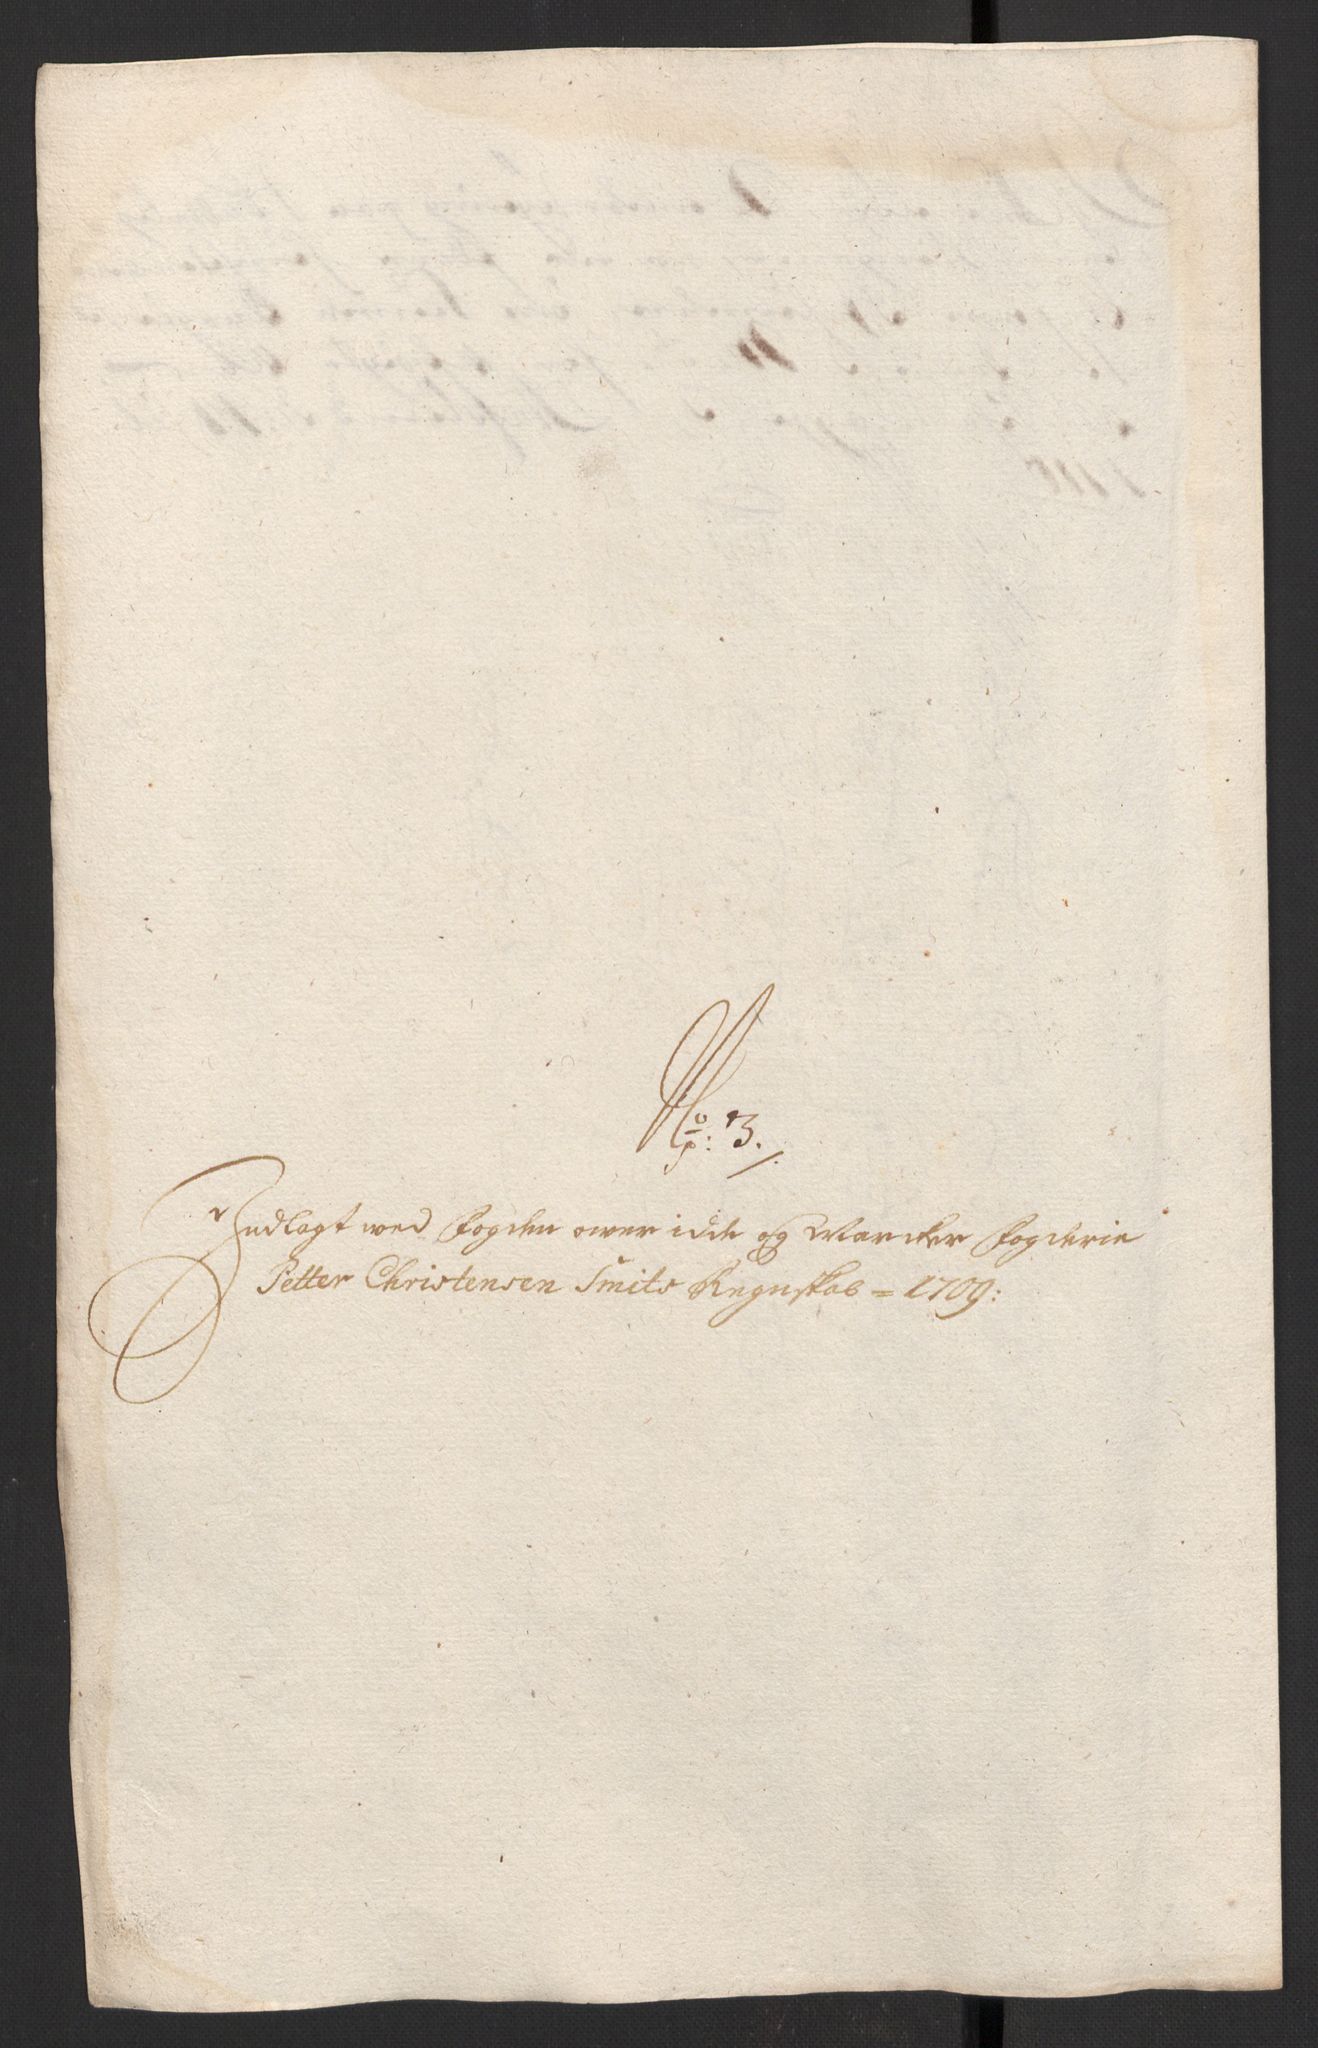 No: 3.
Indlagt wed fogden ower idde og Marcker fogderie
Petter Christensen Smits Regnskab = 1709: